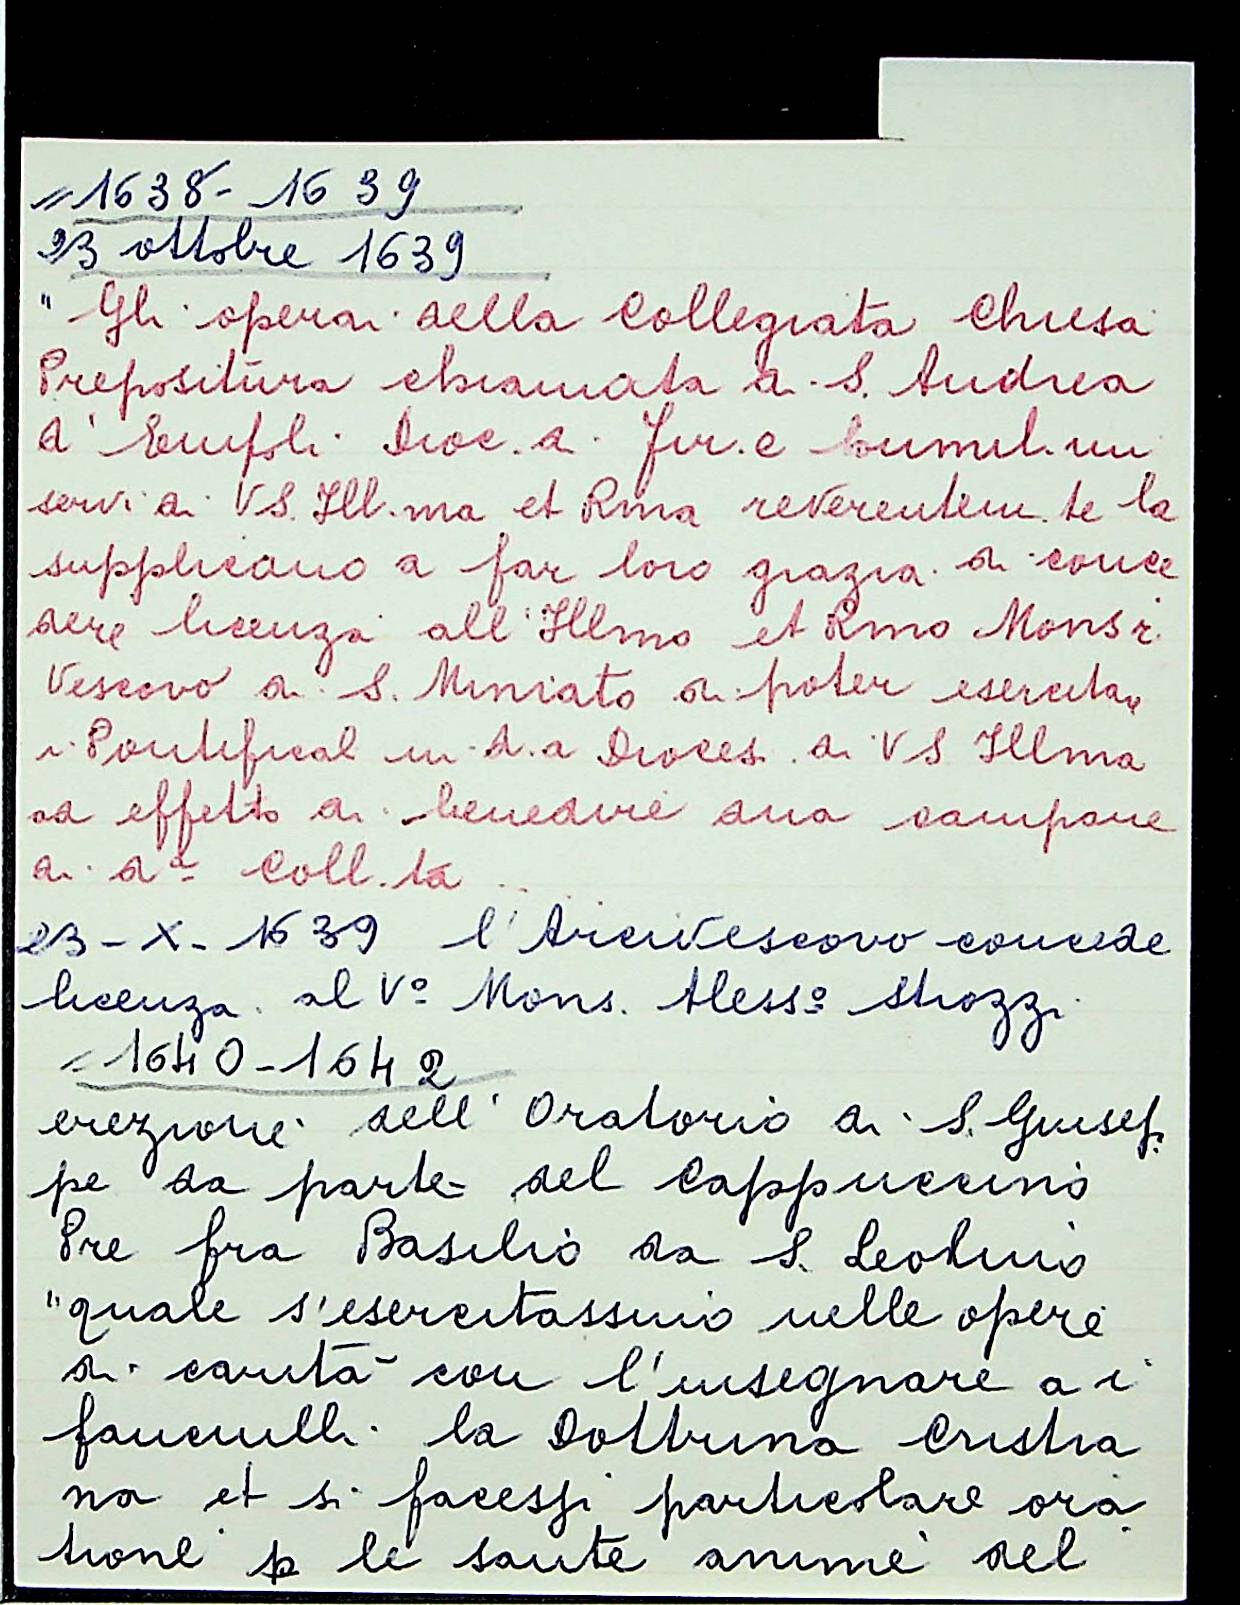 = 1638 - 1639
23 ottobre 1639
" Gli operai della Collegiata Chiesa
Prepositura chiamata di S. Andrea
d' Empoli Dioc. di Fir.e humil.mi
servi di VS. Ill.ma et Rma reverentem.te la
supplicano a far loro grazia di conce
dere licenza all' Illmo et Rmo Monsr.
Vescovo di S. Miniato di poter esercitare
i Pontificali in d.a Dioces. di VS Illma
ad effetto di benedire dua campane
di d.a Coll.ta
23 - X - 1639 l'Arcivescovo concede
licenza al Vº Mons. Alessº Strozzi
= 1640 - 1642
erezione dell' Oratorio di S. Giusep
pe da parte del Cappuccino
Pre fra Basilio da S. Leolino
"quale s'esercitassino nelle opere
di carità con l'insegnare a i
fanciulli la Dottrina Cristia
na et si facessi particolare ora
tione p le sante anime del